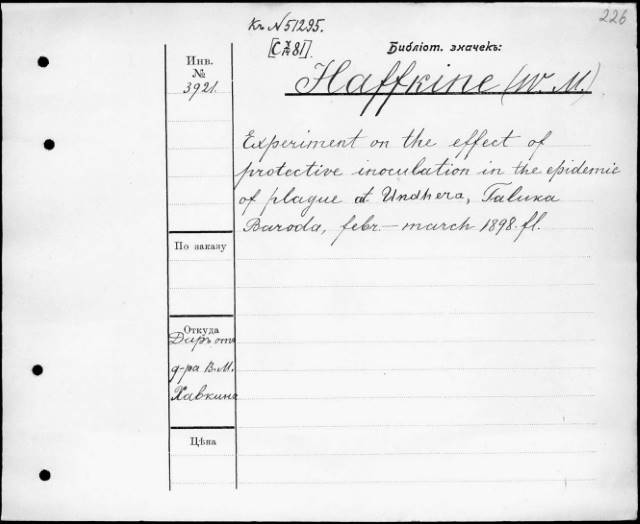 226
Къ N 51295.
Библіот. значекъ:
Haffkine (W. M.)
Инв.
№
3921.
Experiment on the effect of
protective inoculation in the epidemic
of plague at Undhera, Taluka
Baroda, febr.—march 1898. fl.
По заказу
Откуда
Даръ отъ
д-ра В. М.
Хавкина
Цѣна